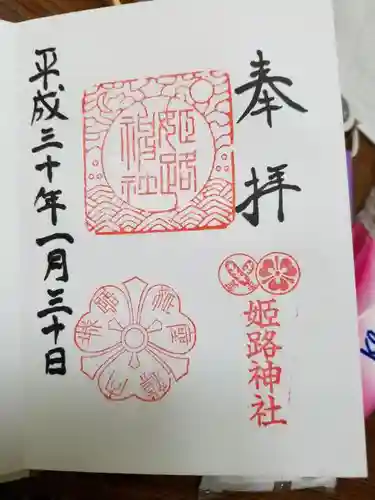 奉拝
姫路神社
姫路神社
平成三十年一月三十日